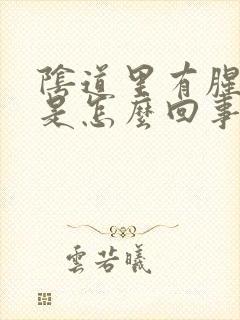 陰道里有腥
是怎麼回事
雲若曦